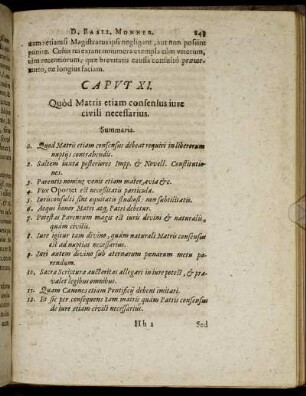 D. BASIL. MONNER. 243
tum: etiamsi Magistratus ipsi negligant, aut non possint
punire. Cuius rei extant innumera exempla cùm veterum,
tùm recentiorum, quæ brevitatis causa consultò præter-
mitto, ne longius faciam.
CAPVT XI.
Quòd Matris etiam consensus iure
civili necessarius.
Summaria.
1. Quod Matris etiam consensus debeat requiri in liberorum
nuptijs contrahendis.
2. Saltem iuxta posteriores Impp. & Novell. Constitutio-
nes.
3. Parentis nomine venit etiam mater, avia &c.
4. Vox Oportet est necessitatis particula.
5. Iurisconsulti sunt æquitatis studiosi: non subtilitatis.
6. Æque honor Matri atq; Patri debetur.
7. Potestas Parentum magis est iuris divini & naturalis,
quàm civilis.
8. Iure igitur tam divino, quàm naturali Matris consensus
est ad nuptias necessarius.
9. Iuri autem divino sub æternarum pœnarum metu pa-
rendum.
10. Sacra Scriptura auctoritas allegari in iure potest, & præ-
valet legibus omnibus.
11. Quam Canones etiam Pontificij debent imitari.
12. Et sic per consequens tam matris quàm Patris consensus
de iure etiam civili necessarius.
Hh 2 Sed